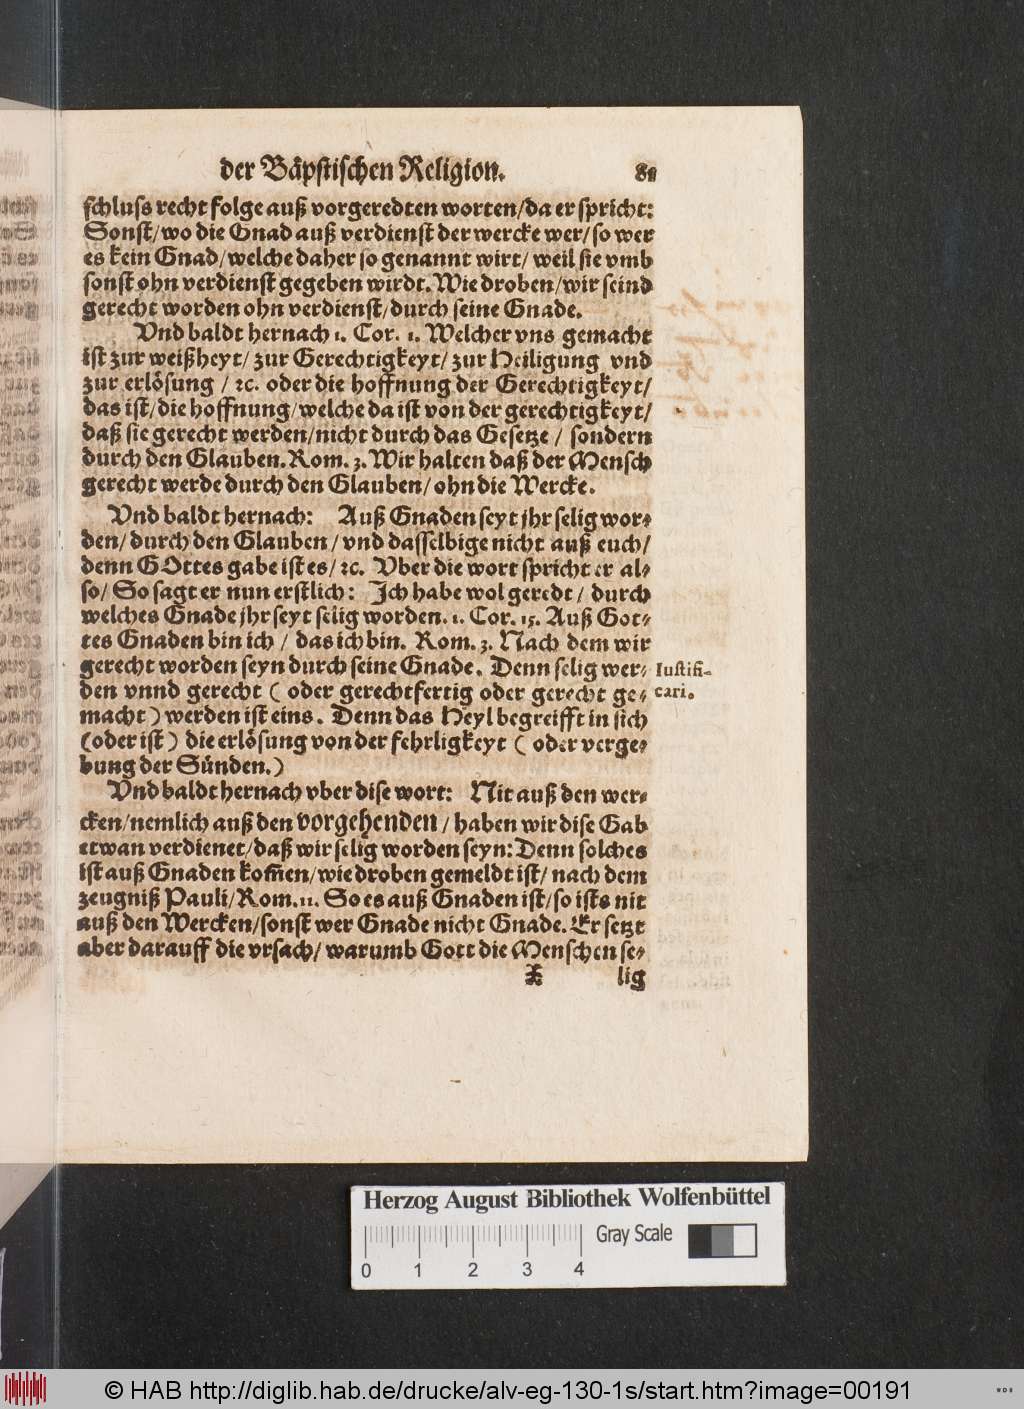 der Bäpstischen Religion. 81
schluss recht folge auß vorgeredten worten/da er spricht:
Sonst/wo die Gnad auß verdienst der wercke wer/so wer
es kein Gnad/welche daher so genannt wirt/weil sie vmb
sonst ohn verdienst gegeben wirdt. Wie droben/wir seind
gerecht worden ohn verdienst/durch seine Gnade.
Vnd baldt hernach 1. Cor. 1. Welcher vns gemacht
ist zur weißheyt/ zur Gerechtigkeyt/ zur Heiligung vnd
zur erlösung / ꝛc. oder die hoffnung der Gerechtigkeyt/
das ist/die hoffnung/welche da ist von der gerechtigkeyt/
daß sie gerecht werden/nicht durch das Gesetze / sondern
durch den Glauben. Rom. 3. Wir halten daß der Mensch
gerecht werde durch den Glauben/ohn die Wercke.
Vnd baldt hernach: Auß Gnaden seyt jhr selig wor⸗
den/durch den Glauben/vnd dasselbige nicht auß euch/
denn GOttes gabe ist es/ ꝛc. Vber die wort spricht er al⸗
so/ So sagt er nun erstlich: Ich habe wol geredt / durch
welches Gnade jhr seyt selig worden. 1. Cor. 15. Auß Got⸗
tes Gnaden bin ich / das ich bin. Rom. 3. Nach dem wir
gerecht worden seyn durch seine Gnade. Denn selig wer⸗
den vnnd gerecht ( oder gerechtfertig oder gerecht ge⸗
macht ) werden ist eins. Denn das Heyl begreifft in sich
(oder ist ) die erlösung von der fehrligkeyt ( oder verge⸗
bung der Sünden.)
Iustifi-
cari.
Vnd baldt hernach vber dise wort: Nit auß den wer⸗
cken/nemlich auß den vorgehenden / haben wir dise Gab
etwan verdienet/daß wir selig worden seyn: Denn solches
ist auß Gnaden kom̃en/wie droben gemeldt ist/ nach dem
zeugniß Pauli/Rom. 11. So es auß Gnaden ist/so ists nit
auß den Wercken/sonst wer Gnade nicht Gnade. Er setzt
aber darauff die vrsach/ warumb Gott die Menschen se⸗
X lig
Herzog August Bibliothek Wolfenbüttel
Gray Scale
0 1 2 3 4
© HAB http://diglib.hab.de/drucke/alv-eg-130-1s/start.htm?image=00191